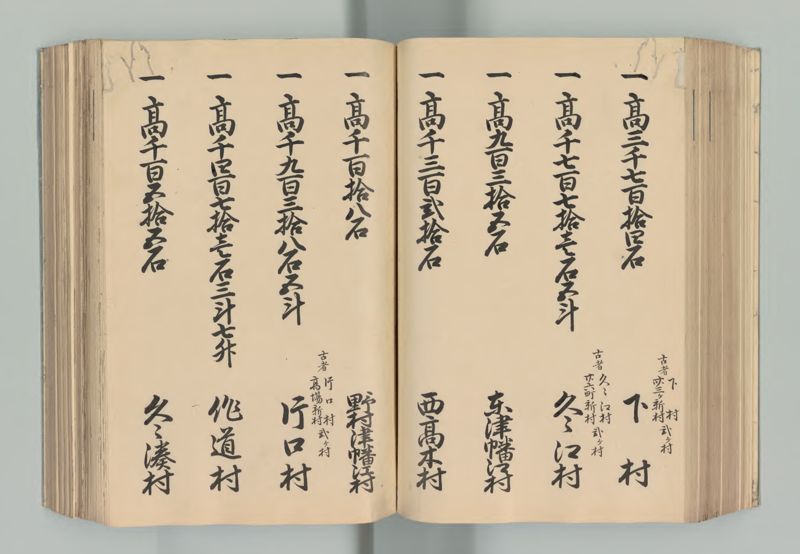 一高三千七百拾四石
古者 下村
廿三ヶ新村 弐ヶ村
下村
一高千七百七拾壱石五斗
古者 久々江村
廿六町新村 弐ヶ村
久々江村
一高九百三拾五石
東津幡江村
一高千三百弐拾石
西高木村
一高千百拾八石
野村津幡江村
一高千九百三拾八石五斗
古者 片口村
高場新村 弐ヶ村
片口村
一高千四百七拾壱石三斗七升
作道村
一高千百五拾五石
久々湊村